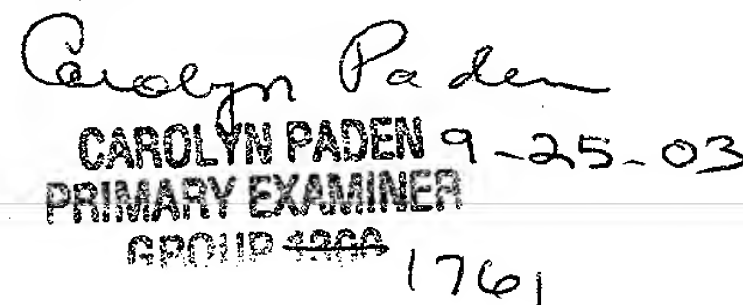 Carolyn Paden
CAROLYN PADEN 9-25-03
PRIMARY EXAMINER
GROUP 1300 1761